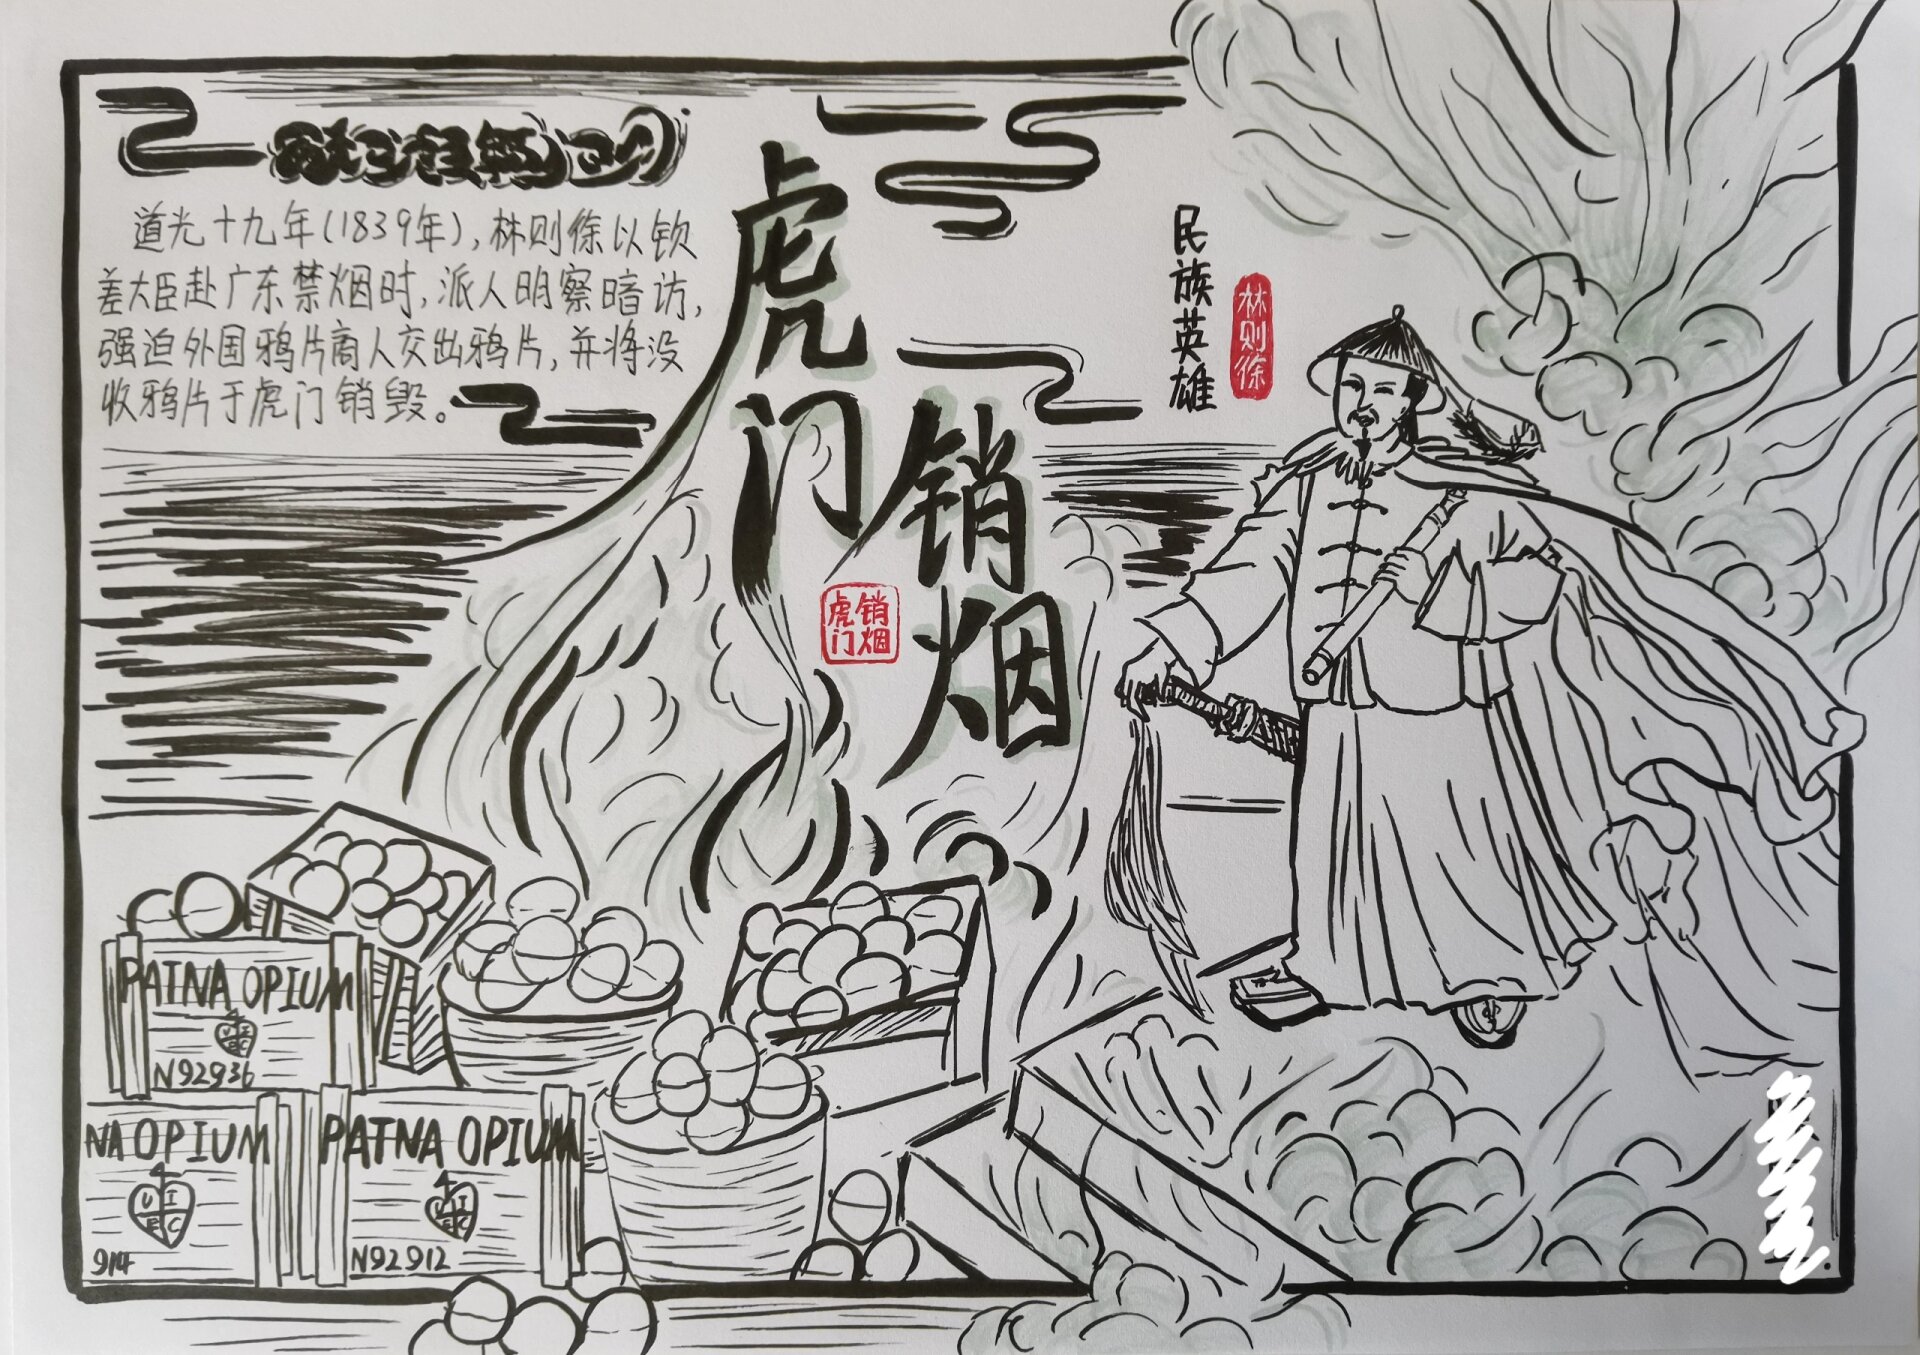 道光十九年(1839年),林则徐以钦
差大臣赴广东禁烟时,派人明察暗访,
强迫外国鸦片商人交出鸦片,并将没
收鸦片于虎门销毁。
虎门
销烟
虎门
销烟
民族英雄
林则徐
PATNA OPIUM
N92936
NA OPIUM
U I
E C
914
PATNA OPIUM
N92912